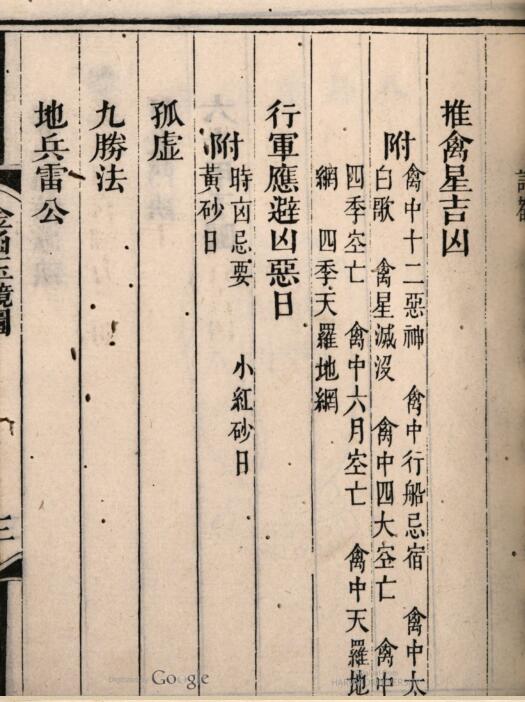 推禽星吉凶
附
禽中十二惡神　禽中行船忌宿　禽中太
白歌　禽星滅沒　禽中四大空亡　禽中
四季空亡　禽中六月空亡　禽中天羅地
網　四季天羅地網
行軍應避凶惡日
附
時凶忌要　小紅砂日
黃砂日
孤虛
九勝法
地兵雷公
金函玉鏡圖
三
Google